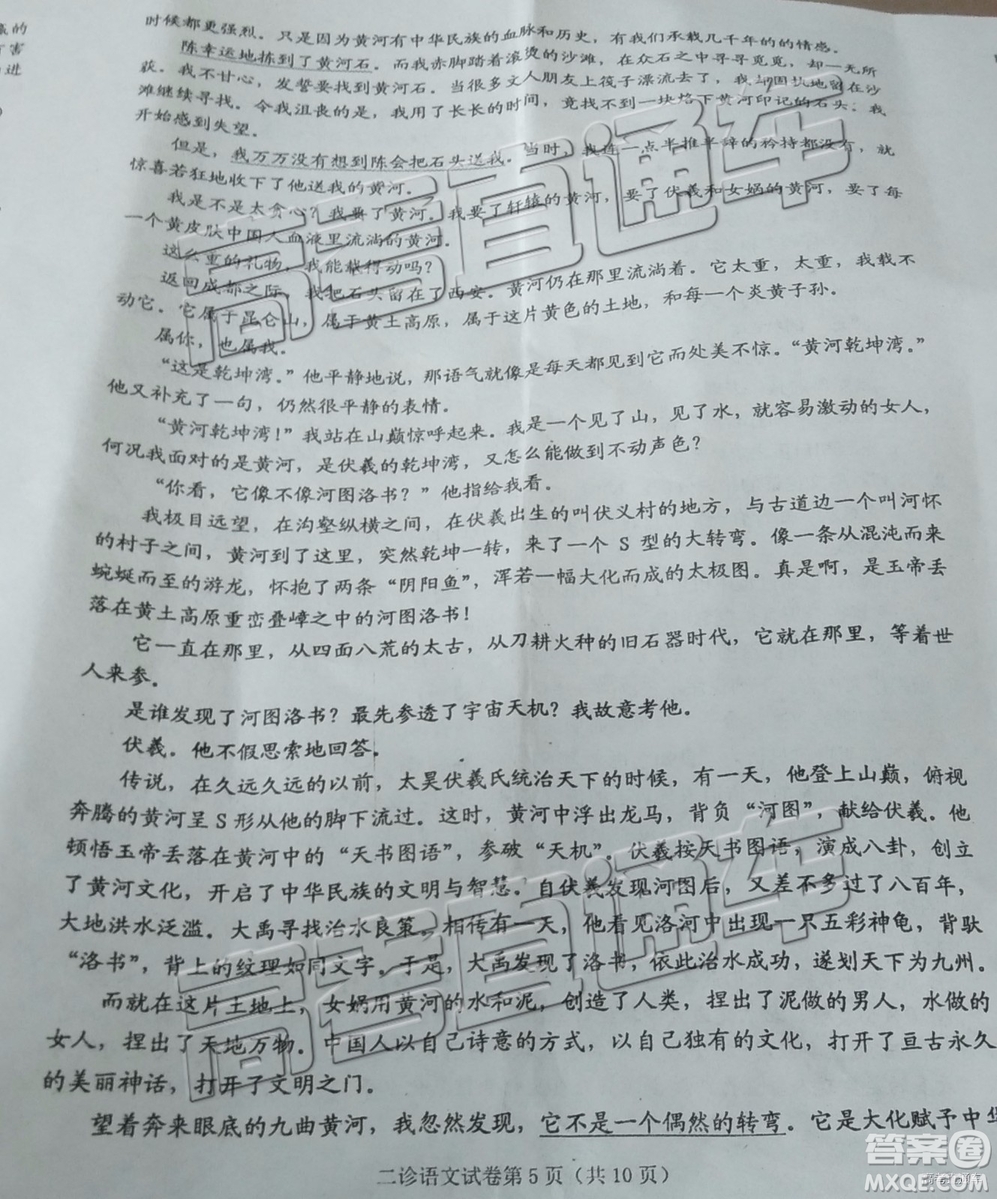 时候都更强烈。只是因为黄河有中华民族的血脉和历史，有我们承载几千年的的情感。
陈幸运地拣到了黄河石。而我赤脚踏着滚烫的沙滩，在众石之中寻寻觅觅，却一无所
获。我不甘心，发誓要找到黄河石。当很多文人朋友上筏子漂流去了，我
滩继续寻找。令我沮丧的是，我用了长长的时间，竟找不到一块烙下黄河印记的石头，我
开始感到失望。
但是，我万万没有想到陈会把石头送我。当时，我连一点半推半辞的矜持都没有，就
惊喜若狂地收下了他送我的黄河。
我是不是太贪心？我要了黄河。我要了轩辕的黄河，要了伏羲和女娲的黄河，要了每
一个黄皮肤中国人血液里流淌的黄河。
这么重的礼物，我能载得动吗？
返回成都之际，我把石头留在了西安。黄河仍在那里流淌着。它太重，太重，我载不
动它。它属于昆仑山，属于黄土高原，属于这片黄色的土地，和每一个炎黄子孙。
属你，也属我。
“这是乾坤湾。”他平静地说，那语气就像是每天都见到它而处美不惊。“黄河乾坤湾。”
他又补充了一句，仍然很平静的表情。
“黄河乾坤湾！”我站在山巅惊呼起来。我是一个见了山，见了水，就容易激动的女人，
何况我面对的是黄河，是伏羲的乾坤湾，又怎么能做到不动声色？
“你看，它像不像河图洛书？”他指给我看。
我极目远望，在沟壑纵横之间，在伏羲出生的叫伏义村的地方，与古道边一个叫河怀
的村子之间，黄河到了这里，突然乾坤一转，来了一个 S 型的大转弯。像一条从混沌而来
蜿蜒而至的游龙，怀抱了两条“阴阳鱼”，浑若一幅大化而成的太极图。真是啊，是玉帝丢
落在黄土高原重峦叠嶂之中的河图洛书！
它一直在那里，从四面八荒的太古，从刀耕火种的旧石器时代，它就在那里，等着世
人来参。
是谁发现了河图洛书？最先参透了宇宙天机？我故意考他。
伏羲。他不假思索地回答。
传说，在久远久远的以前，太昊伏羲氏统治天下的时候，有一天，他登上山巅，俯视
奔腾的黄河呈 S 形从他的脚下流过。这时，黄河中浮出龙马，背负“河图”，献给伏羲。他
顿悟玉帝丢落在黄河中的“天书图语”，参破“天机”。伏羲按天书图语，演成八卦，创立
了黄河文化，开启了中华民族的文明与智慧。自伏羲发现河图后，又差不多过了八百年，
大地洪水泛滥。大禹寻找治水良策。相传有一天，他看见洛河中出现一只五彩神龟，背驮
“洛书”，背上的纹理如同文字。于是，大禹发现了洛书，依此治水成功，遂划天下为九州。
而就在这片土地上，女娲用黄河的水和泥，创造了人类，捏出了泥做的男人，水做的
女人，捏出了天地万物。中国人以自己诗意的方式，以自己独有的文化，打开了亘古永久
的美丽神话，打开了文明之门。
望着奔来眼底的九曲黄河，我忽然发现，它不是一个偶然的转弯。它是大化赋予中华
二诊语文试卷第 5 页（共 10 页）
高考直通车
高考直通车
答案圈